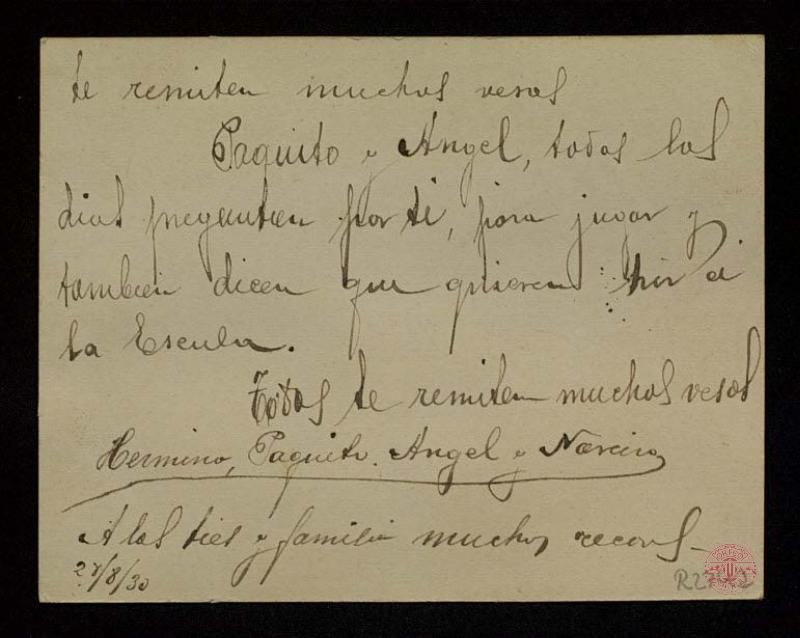 te remiten muchos vesos
Paquito y Angel, todos los
dias preguntan por ti, para jugar y
tambien dicen que quieren hir a
la Escuela.
Todos te remiten muchos vesos
Herminio, Paquito, Angel y Narciso
A los ties y familia muchos records
27/8/30